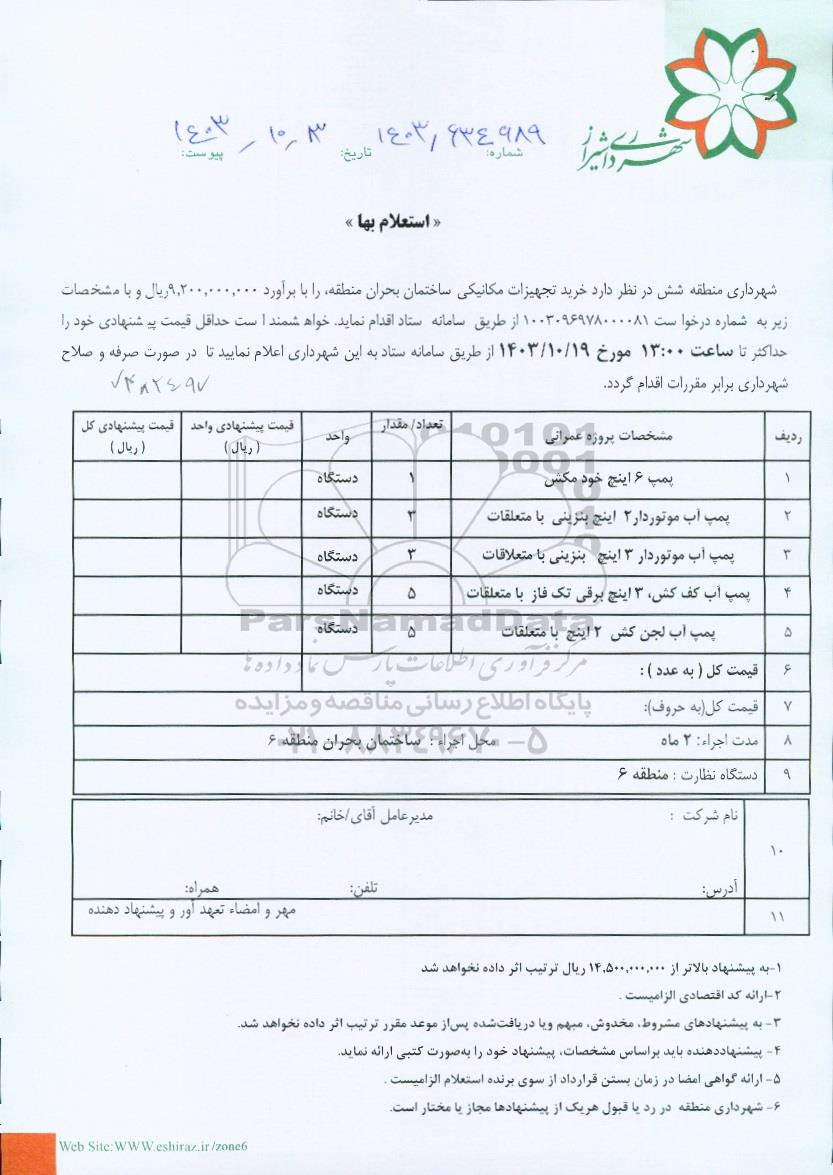 شهرداری شیراز
شماره: ۱۴۰۳/۶۳۴۹۸۹
تاریخ: ۱۴۰۳/۱۰/۳
پیوست:
« استعلام بها »
شهرداری منطقه شش در نظر دارد خرید تجهیزات مکانیکی ساختمان بحران منطقه، را با برآورد ۹,۲۰۰,۰۰۰,۰۰۰ریال و با مشخصات
زیر به شماره درخواست ۱۰۰۳۰۹۶۹۷۸۰۰۰۰۸۱ از طریق سامانه ستاد اقدام نماید. خواهشمند است حداقل قیمت پیشنهادی خود را
حداکثر تا ساعت ۱۳:۰۰ مورخ ۱۴۰۳/۱۰/۱۹ از طریق سامانه ستاد به این شهرداری اعلام نمایید تا در صورت صرفه و صلاح
شهرداری برابر مقررات اقدام گردد.
ردیف مشخصات پروژه عمرانی تعداد/ مقدار واحد قیمت پیشنهادی واحد ( ریال ) قیمت پیشنهادی کل ( ریال )
۱ پمپ ۶ اینچ خود مکش ۱ دستگاه
۲ پمپ آب موتوردار ۲ اینچ بنزینی با متعلقات ۳ دستگاه
۳ پمپ آب موتوردار ۳ اینچ بنزینی با متعلاقات ۳ دستگاه
۴ پمپ آب کف کش، ۳ اینچ برقی تک فاز با متعلقات ۵ دستگاه
۵ پمپ آب لجن کش ۲ اینچ با متعلقات ۵ دستگاه
۶ قیمت کل ( به عدد ) :
۷ قیمت کل(به حروف):
۸ مدت اجراء: ۲ ماه محل اجراء : ساختمان بحران منطقه ۶
۹ دستگاه نظارت : منطقه ۶
۱۰ نام شرکت : مدیرعامل آقای/خانم:
آدرس: تلفن: همراه:
۱۱ مهر و امضاء تعهد آور و پیشنهاد دهنده
ParsNamadData
مرکز فرآوری اطلاعات پارس نماد داده ها
پایگاه اطلاع رسانی مناقصه و مزایده
۰۲۱-۸۸۳۴۹۶۷۰-۵
۱-به پیشنهاد بالاتر از ۱۴,۵۰۰,۰۰۰,۰۰۰ ریال ترتیب اثر داده نخواهد شد
۲-ارائه کد اقتصادی الزامیست .
۳- به پیشنهادهای مشروط، مخدوش، مبهم ویا دریافت‌شده پس‌از موعد مقرر ترتیب اثر داده نخواهد شد.
۴- پیشنهاددهنده باید براساس مشخصات، پیشنهاد خود را به‌صورت کتبی ارائه نماید.
۵- ارائه گواهی امضا در زمان بستن قرارداد از سوی برنده استعلام الزامیست .
۶- شهرداری منطقه در رد یا قبول هریک از پیشنهادها مجاز یا مختار است.
Web Site:WWW.eshiraz.ir/zone6